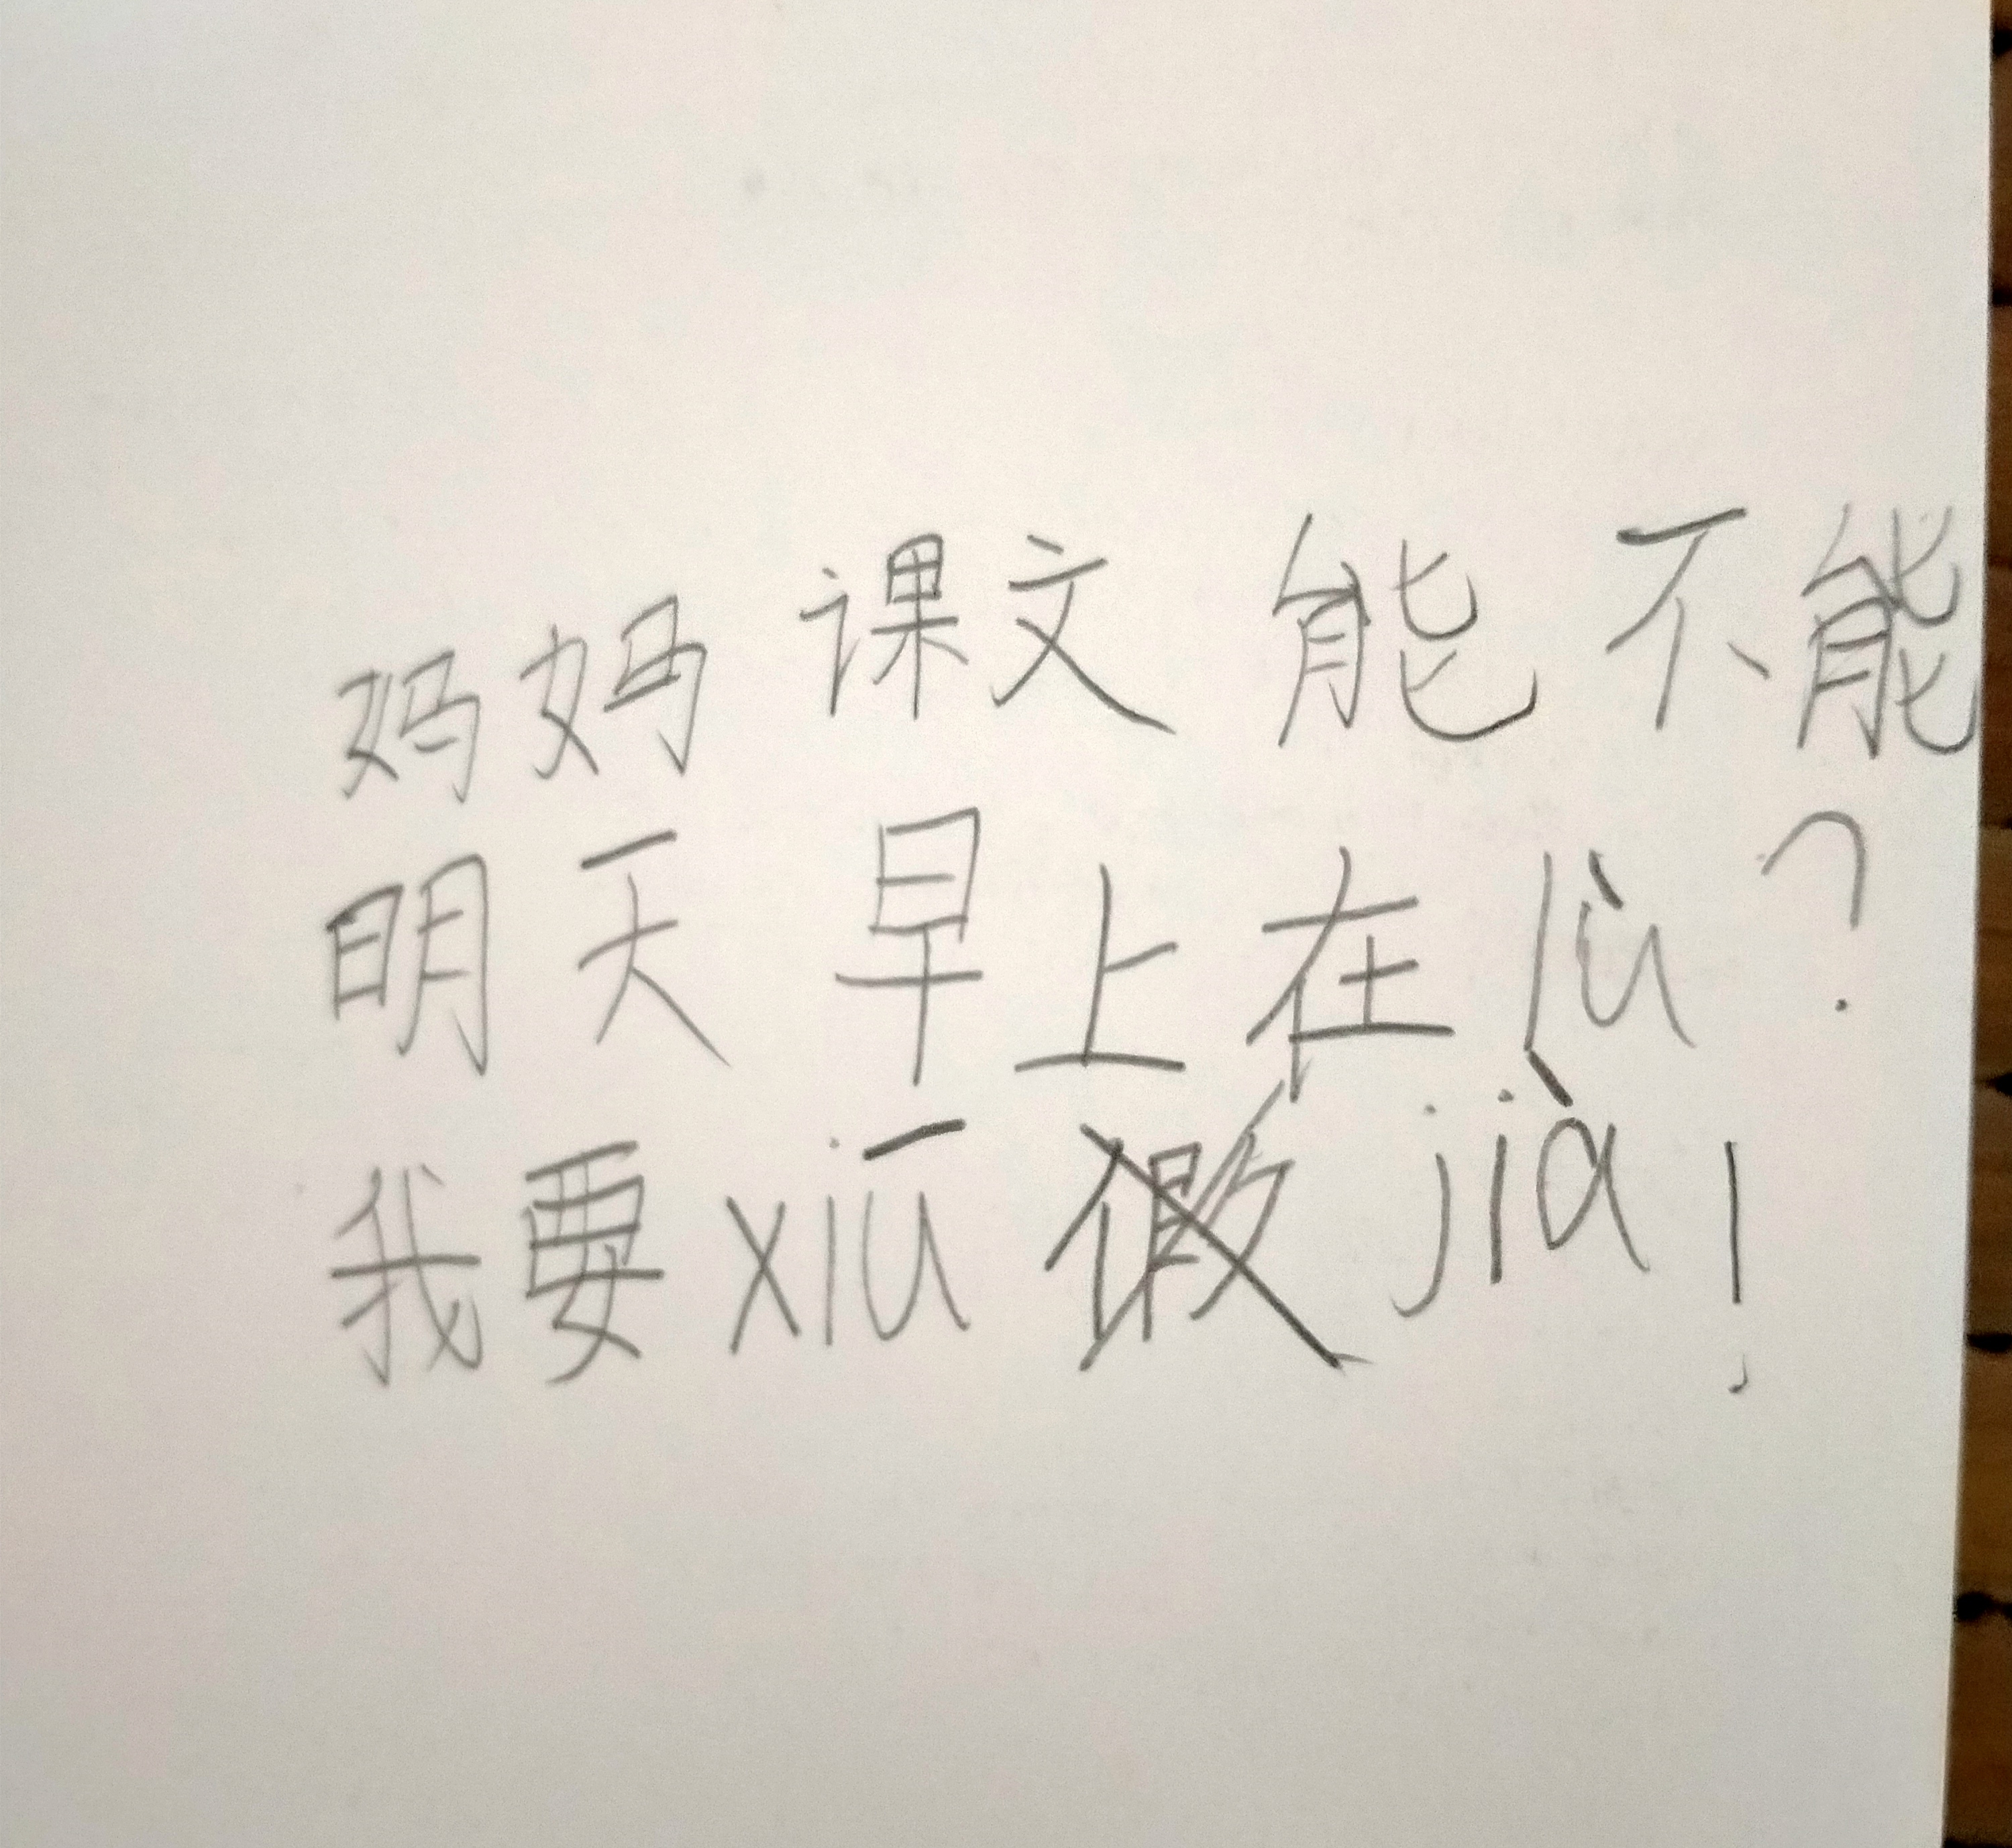 妈妈课文能不能
明天早上在lù?
我要xiū jià!